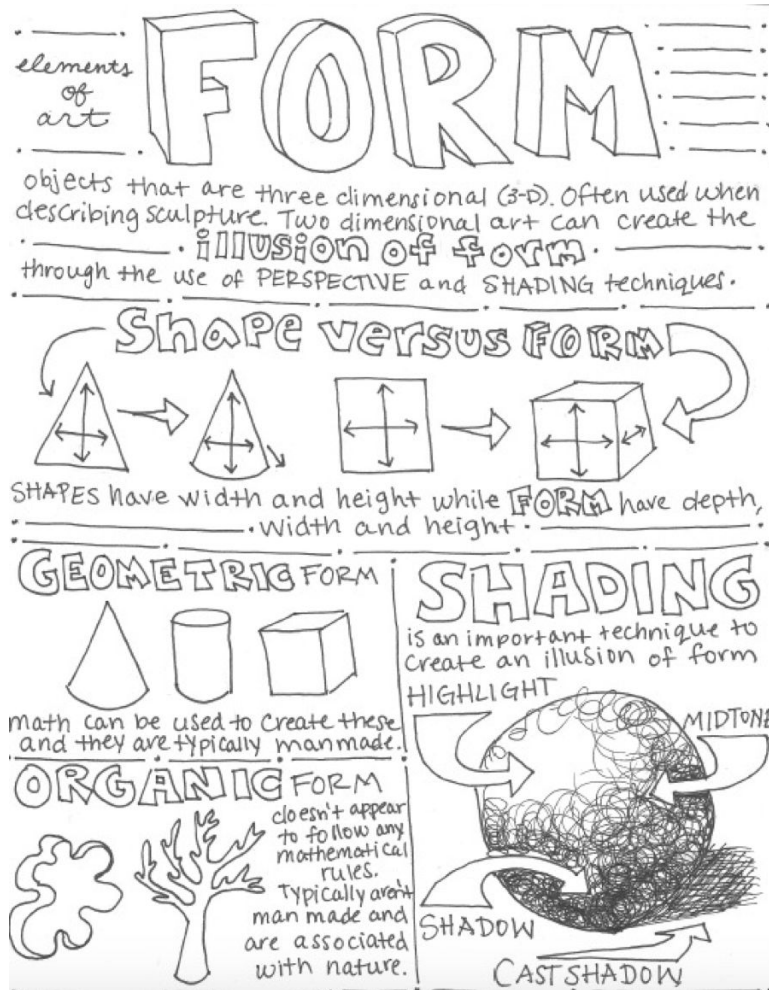 elements
of
art
FORM
objects that are three dimensional (3-D). Often used when
describing sculpture. Two dimensional art can create the
illusion of form
through the use of PERSPECTIVE and SHADING techniques.
Shape versus FORM
SHAPES have width and height while FORM have depth,
width and height.
GEOMETRIC FORM
math can be used to create these
and they are typically manmade.
ORGANIC FORM
doesn't appear
to follow any
mathematical
rules.
Typically aren't
man made and
are associated
with nature.
SHADING
is an important technique to
create an illusion of form
HIGHLIGHT
MIDTONE
SHADOW
CAST SHADOW